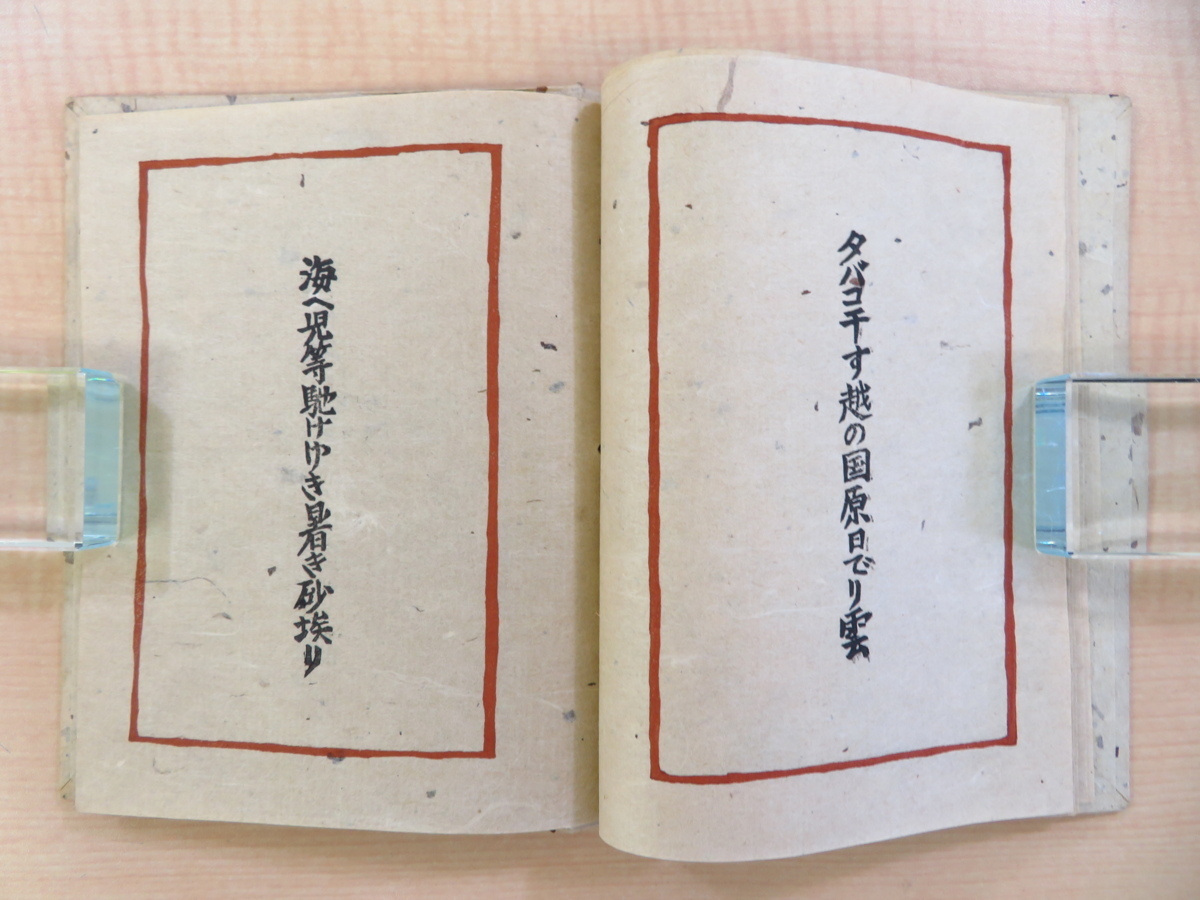 タバコ干す越の国原日でり雲
海へ児等馳けゆき暑き砂埃り